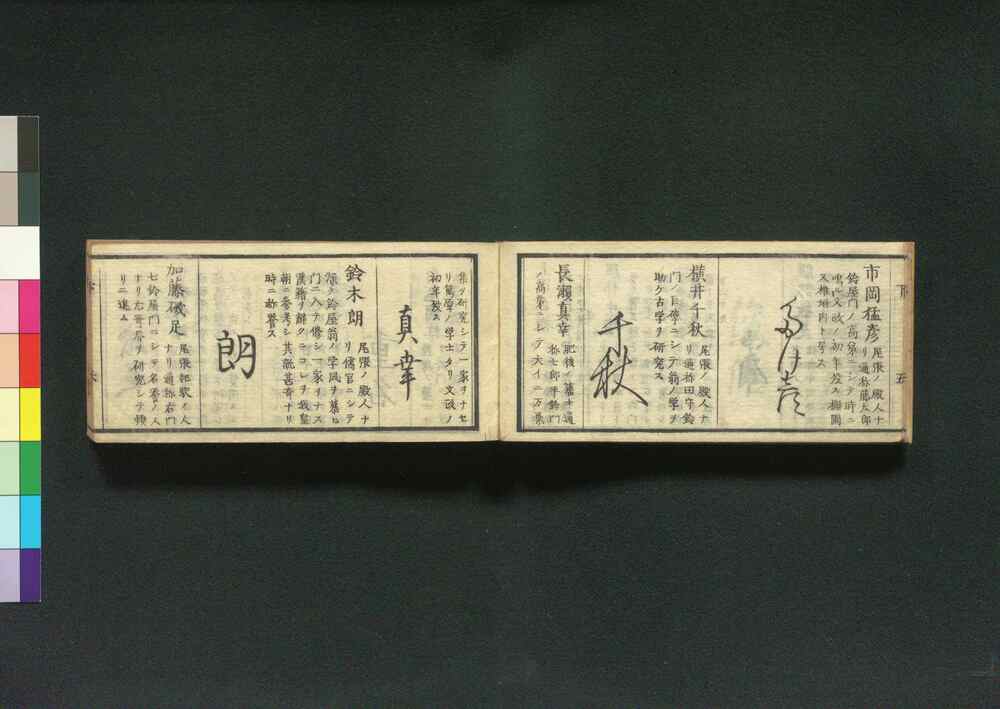 市岡猛彦 尾張ノ殿人ナ
リ通称龍太郎
鈴屋門ノ高弟ニシテ時ニ
鳴ル文政ノ初年歿ス
たけ彦
横井千秋 尾張ノ殿人ナ
リ通称田守鈴
門ノ巨擘ニシテ翁ノ學ヲ
助ケ古学ヲ研究ス
千秋
長瀬真幸 肥後ノ藩士通
称七郎平鈴門
ノ高弟ニシテ大イニ万葉
集ヲ研究シテ一家ヲナセ
リ篤厚ノ學士タリ文政ノ
初年歿ス
真幸
鈴木朗 尾張ノ殿人ナ
リ儒官ニシテ
深ク鈴屋翁ノ学風ヲ慕ヒ
門ニ入テ修シ一家ヲナス
漢籍ノ辞ヲコレヲ我皇
朝ニ参考シ其説甚奇ナリ
時ニ称誉ス
朗
加藤磯足 尾張起駅ノ人
ナリ通称右門
七鈴屋門ニシテ名秀ノ人
ナリ古言ヲ研究シテ頻
リニ進ム